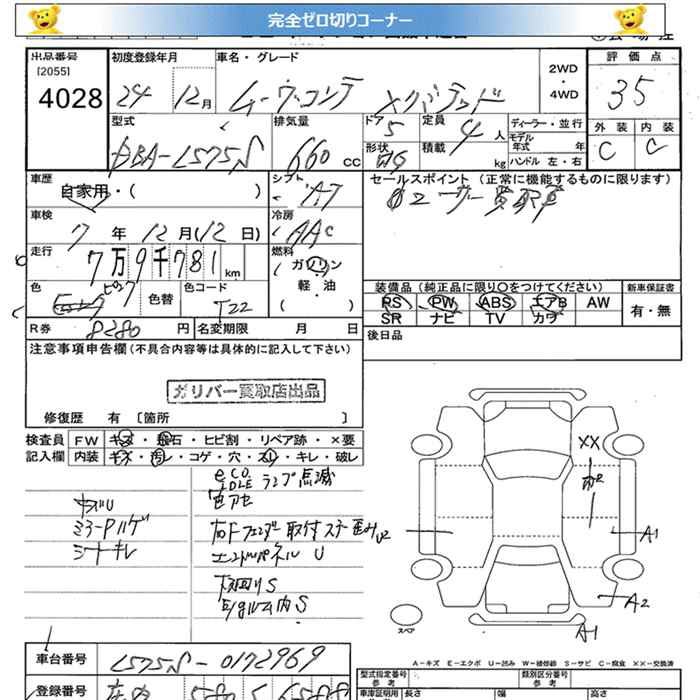 完全ゼロ切りコーナー
出品番号
[2055]
4028
初度登録年月
24 12月
車名・グレード
ムーヴコンテ
2WD
・
4WD
評価点
35
外装 内装
C C
型式
DBA-L575S
排気量
660 cc
ドア 5
形状
定員 4 人
積載 kg
ディーラー・並行
モデル年式 年
ハンドル 左・右
車歴
自家用・( )
シフト
AT
セールスポイント (正常に機能するものに限ります)
車検
7 年 12 月 (12 日)
冷房
AAC
走行
7万9千781 km
燃料
ガソリン
軽・油
( )
色
ピンク
色替
色コード
T22
装備品 (純正品に限り○をつけてください)
PS PW ABS エアB AW
SR ナビ TV カワ
新車保証書
有・無
R券 8280 円
名変期限 月 日
後日品
注意事項申告欄 (不具合内容等は具体的に記入して下さい)
ガリバー買取店出品
修復歴 有 〔箇所 〕
検査員
記入欄
FW キズ・飛石・ヒビ割・リペア跡・×要
内装 キズ・汚レ・コゲ・穴・スレ・キレ・破レ
eco
IDLE ランプ点滅
ミラーPハゲ
シートキレ
右Fフェンダー取付ステー歪み
エンドパネル U
下回りS
E/gルーム内S
XX
U2
A1
A2
A1
スペア
A-キズ E-エクボ U-凹み W-補修跡 S-サビ C-腐食 XX-交換済
車台番号
L575S-0172969
登録番号
型式指定番号
参考
類別区分番号
参考
車検証記入欄
参考
長さ
幅
高さ